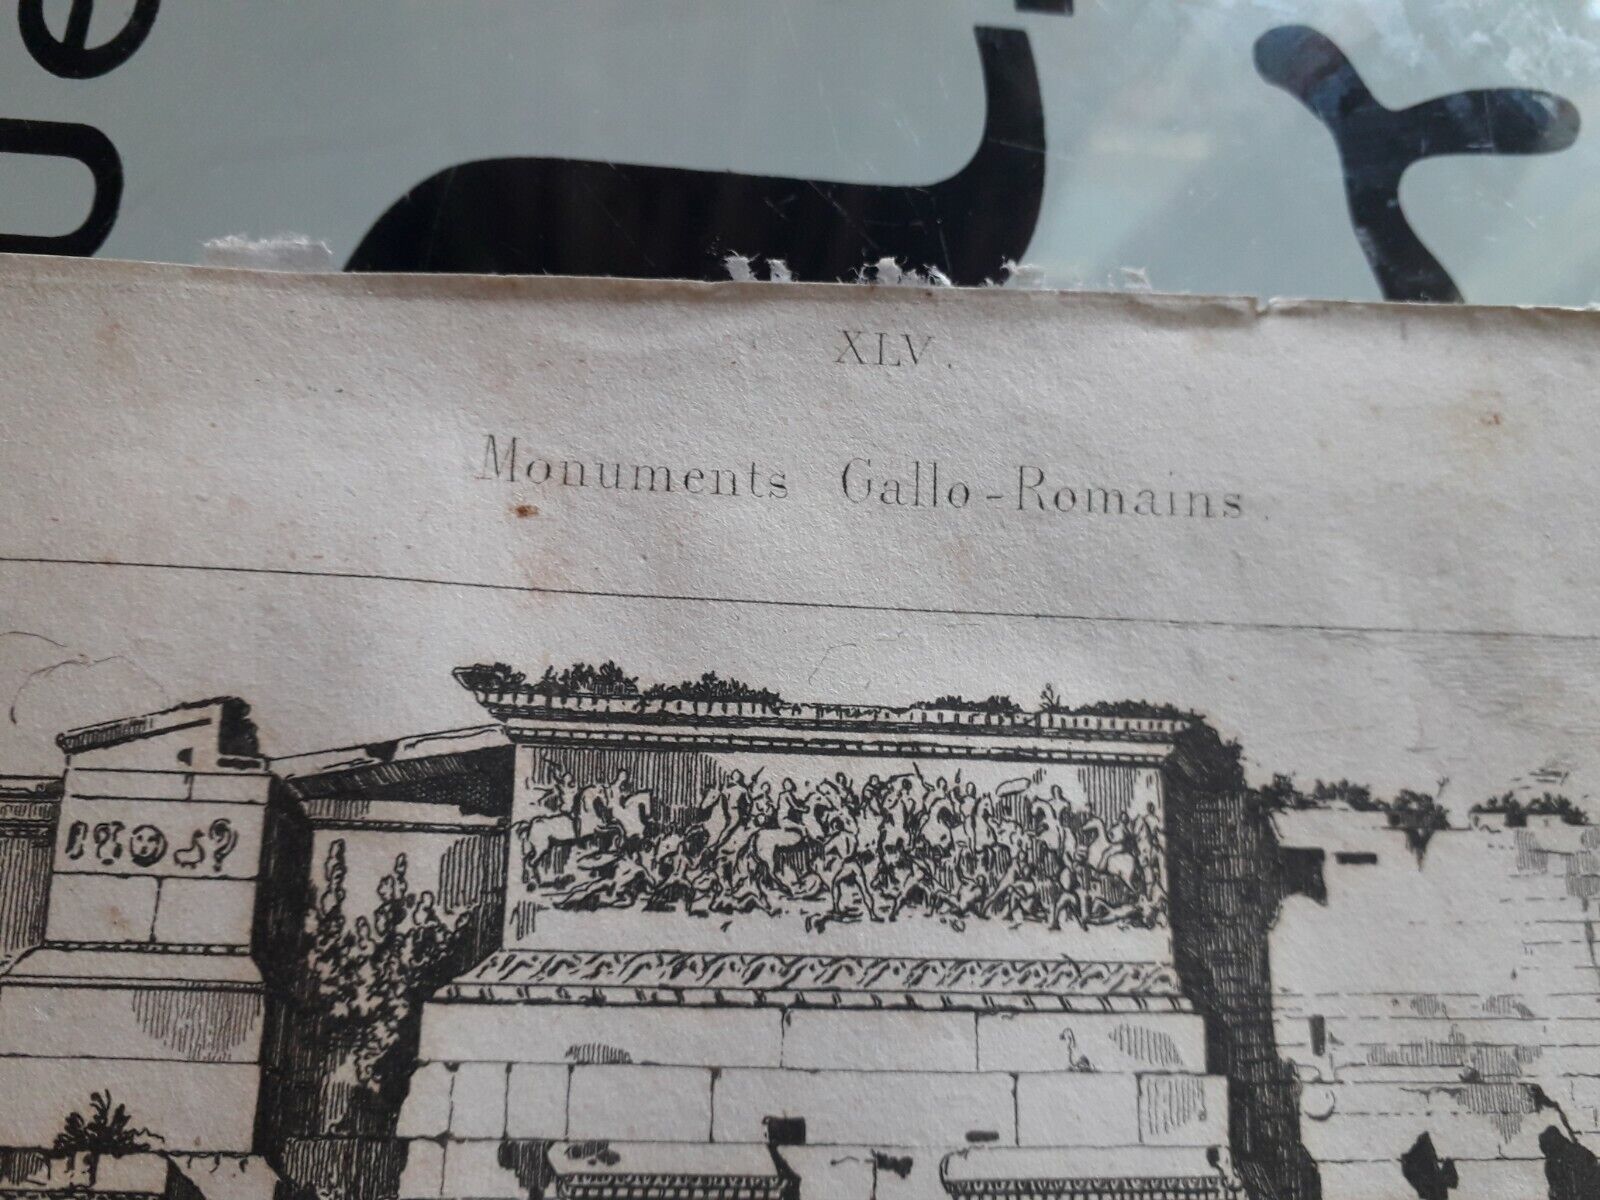 XLV.
Monuments Gallo-Romains.